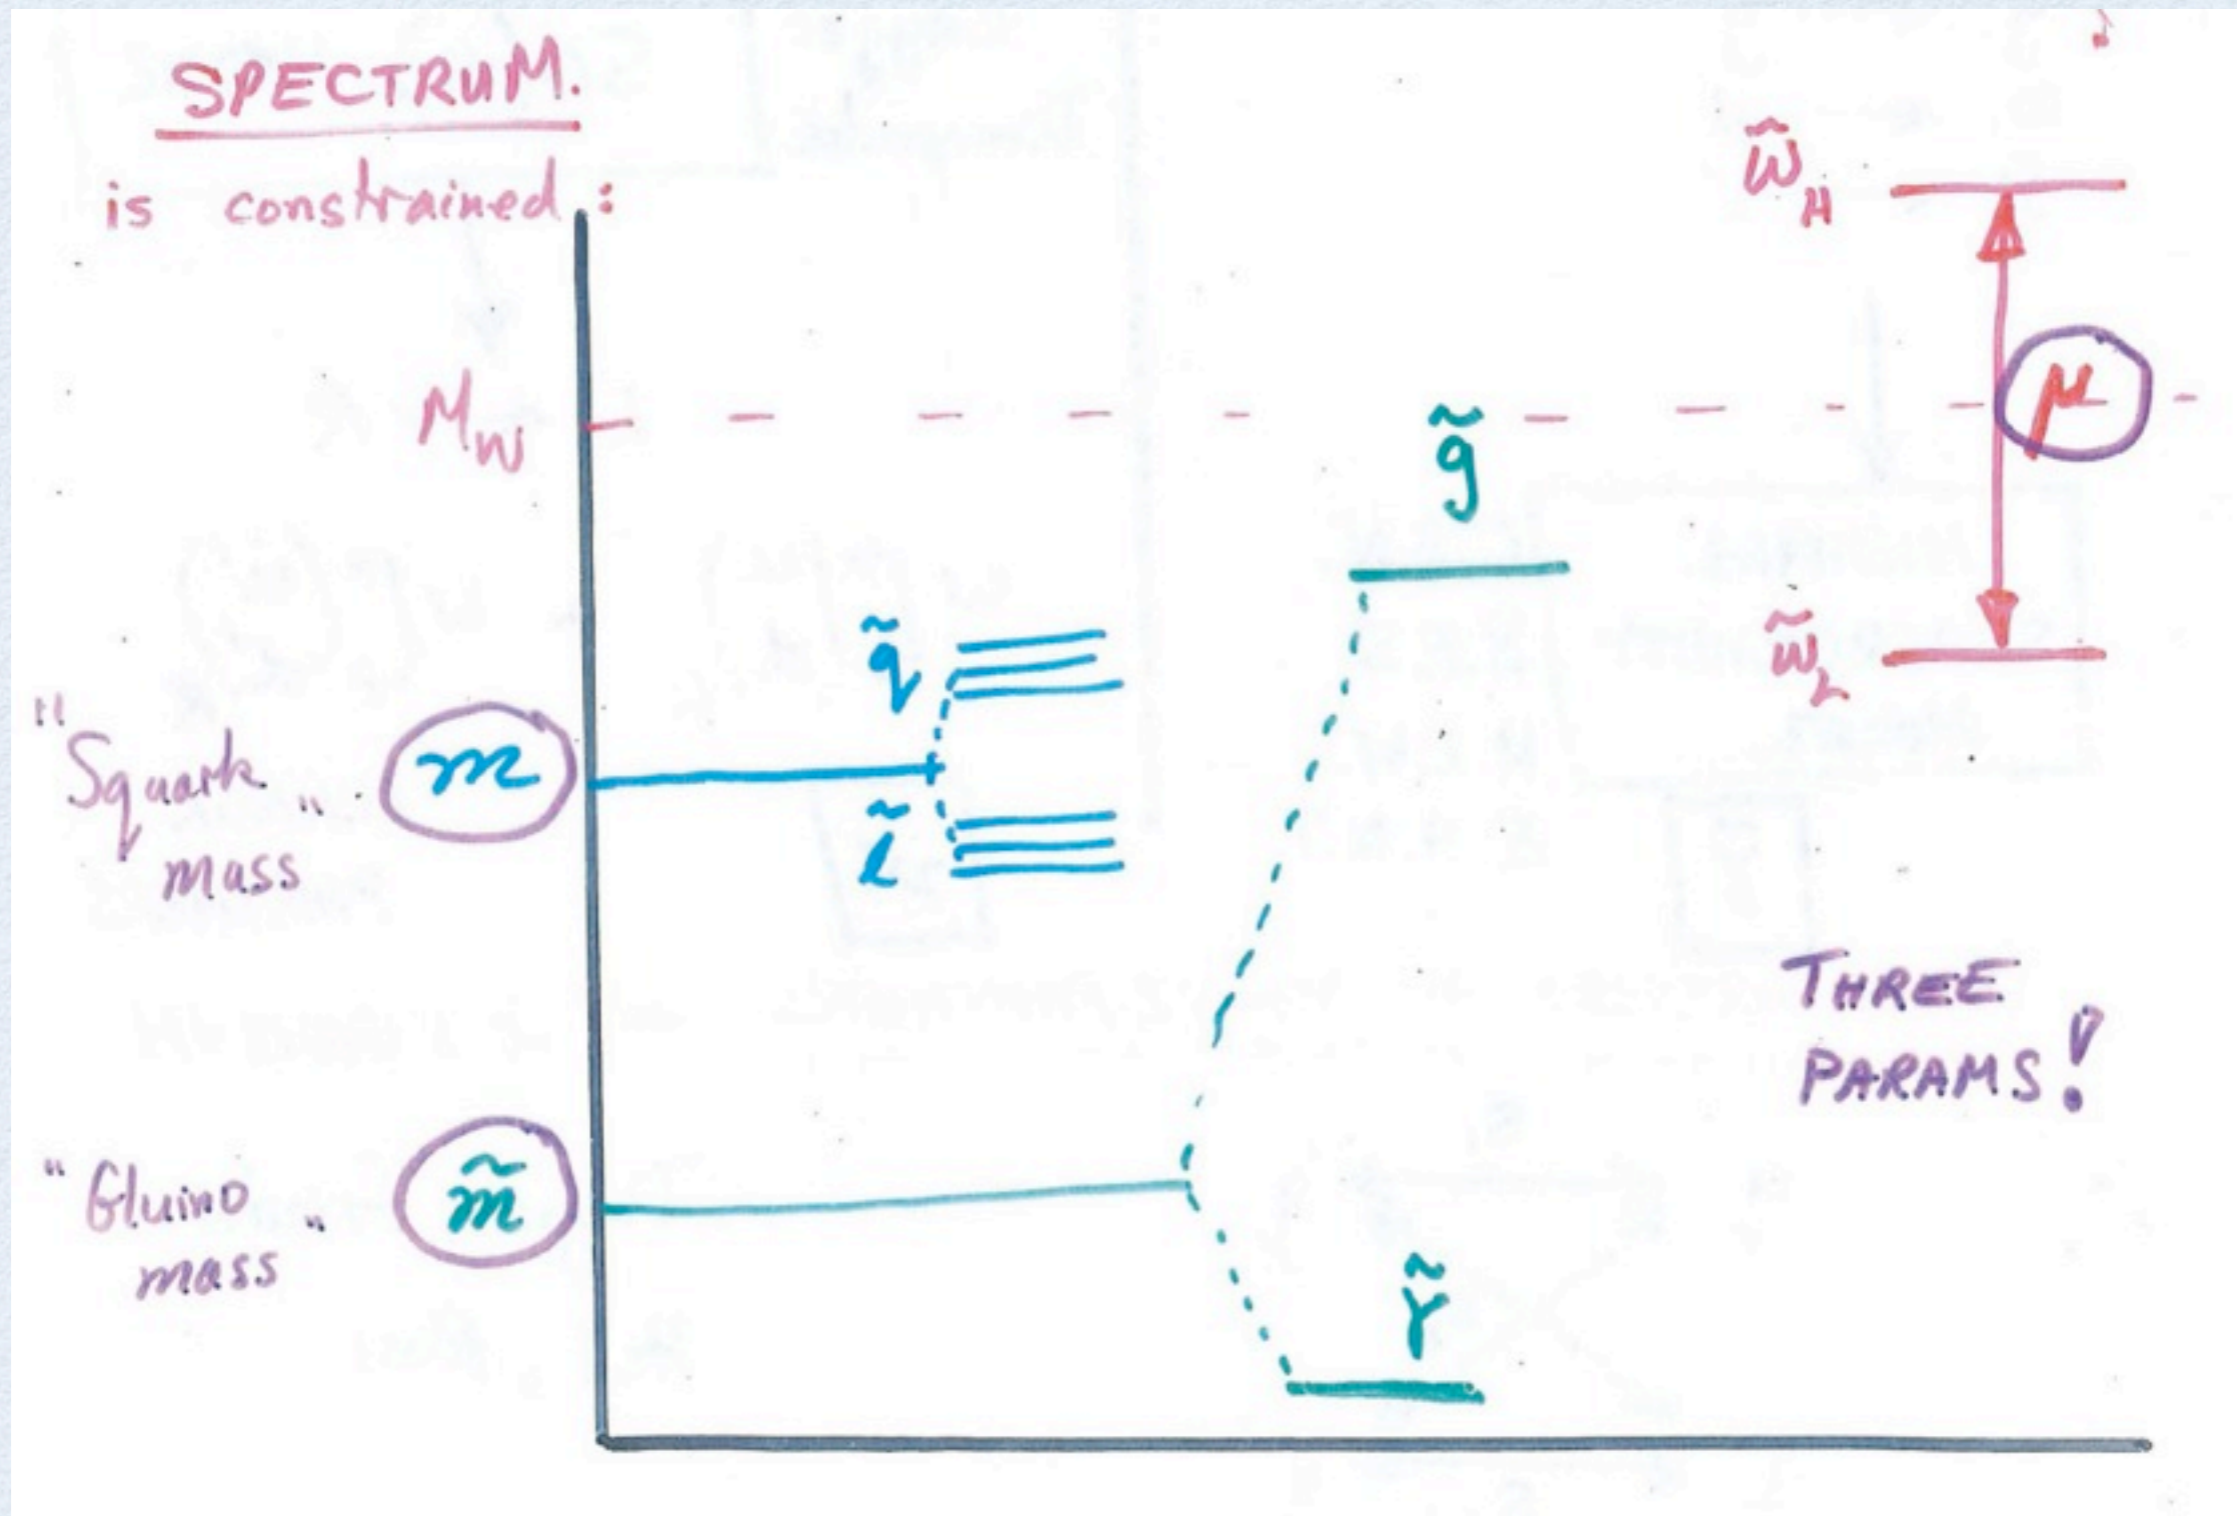 SPECTRUM.
is constrained :
M_W
"Squark" mass
m
q̃
l̃
g̃
w̃_H
μ
w̃_L
THREE
PARAMS!
"Gluino" mass
m̃
γ̃